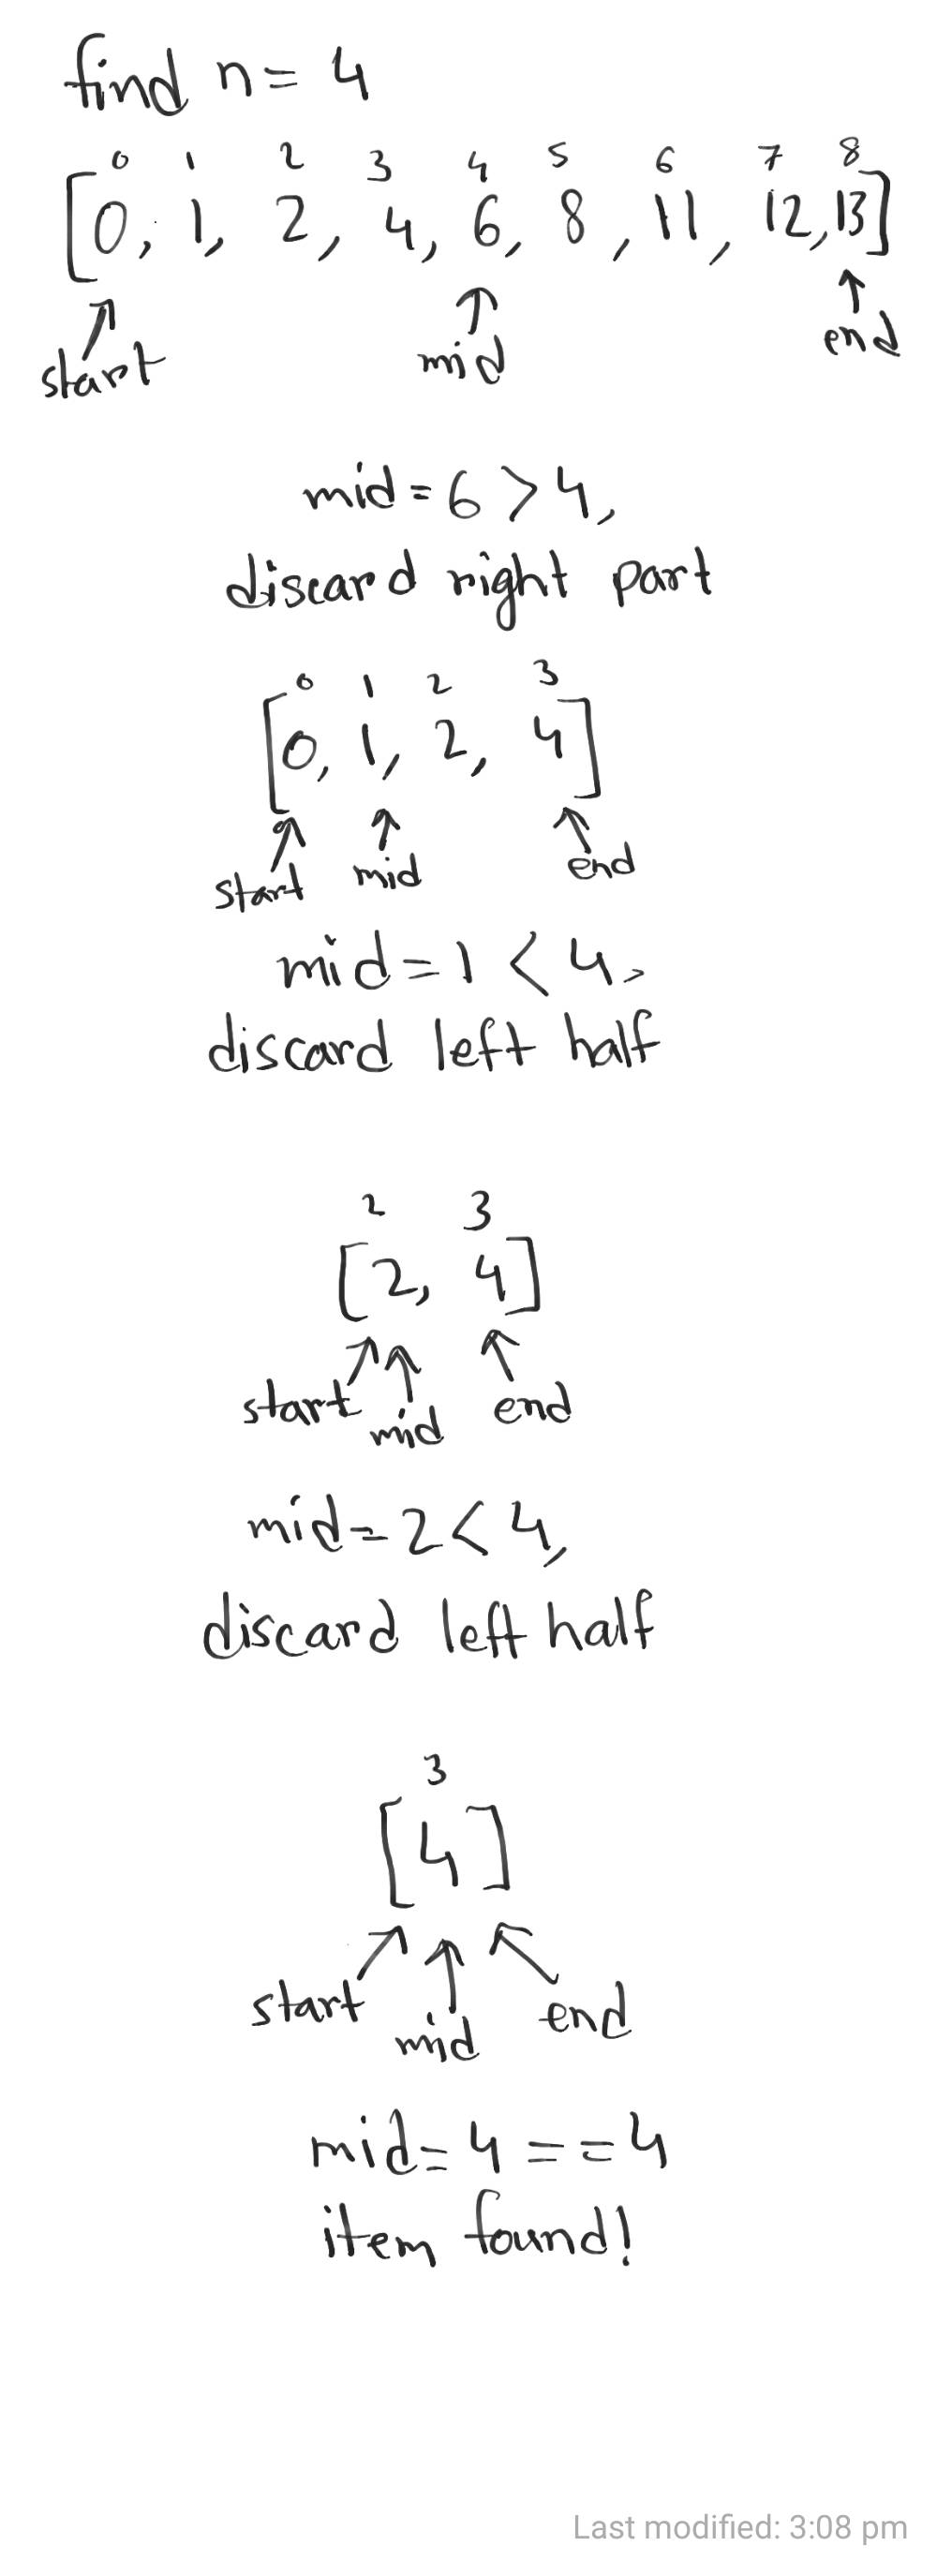 find n= 4
0 1 2 3 4 5 6 7 8
[0, 1, 2, 4, 6, 8, 11, 12, 13]
start mid end
mid = 6 > 4,
discard right part
0 1 2 3
[0, 1, 2, 4]
start mid end
mid = 1 < 4,
discard left half
2 3
[2, 4]
start mid end
mid = 2 < 4,
discard left half
3
[4]
start mid end
mid = 4 == 4
item found!
Last modified: 3:08 pm